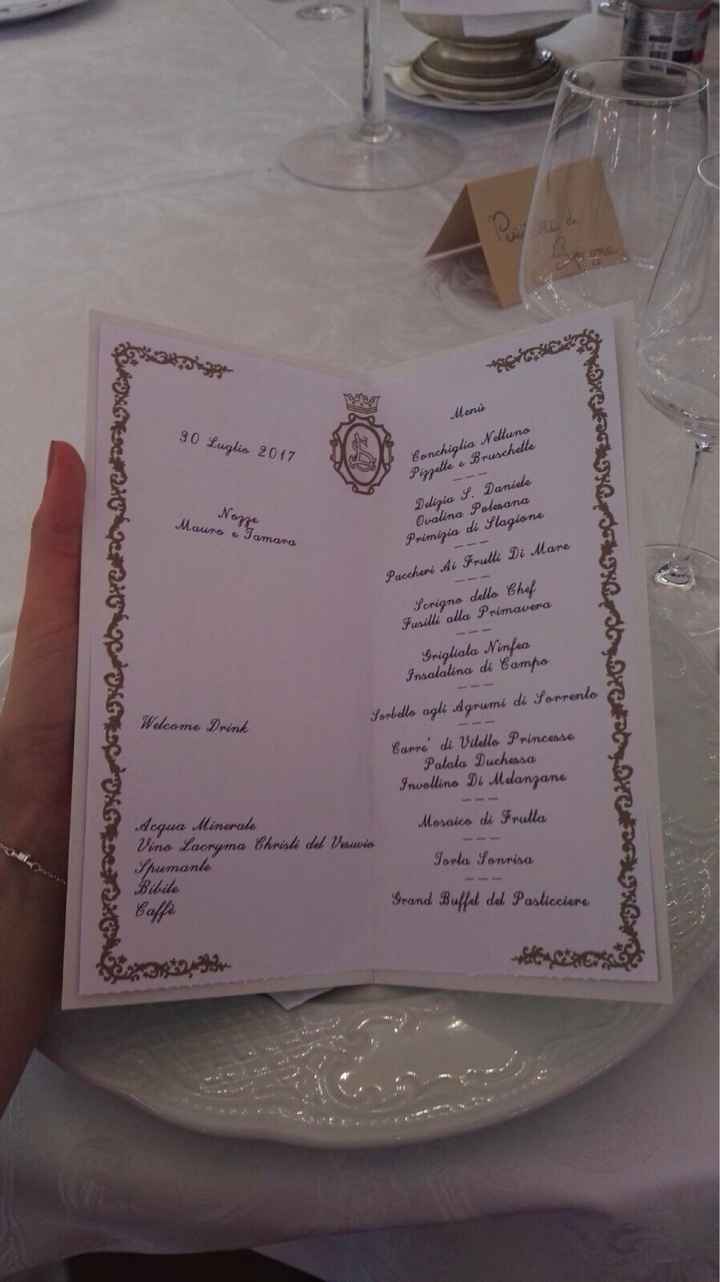 30 Luglio 2017
Nozze
Mauro e Tamara
Welcome Drink
Acqua Minerale
Vino Lacryma Christi del Vesuvio
Spumante
Bibite
Caffè
Menù
Conchiglia Nettuno
Pizzette e Bruschette
---
Delizia S. Daniele
Ovalina Polesana
Primizia di Stagione
---
Paccheri Ai Frutti Di Mare
---
Scrigno dello Chef
Fusilli alla Primavera
---
Grigliata Ninfea
Insalatina di Campo
---
Sorbetto agli Agrumi di Sorrento
---
Carre' di Vitello Princesse
Patata Duchessa
Involtino Di Melanzane
---
Mosaico di Frutta
---
Torta Sonrisa
---
Grand Buffet del Pasticciere